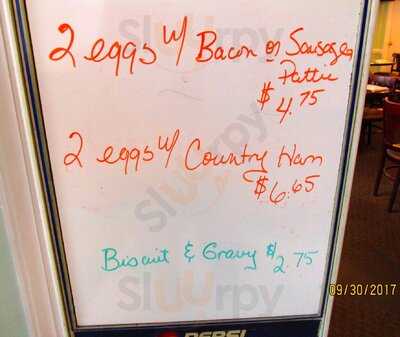 2 eggs w/ Bacon or Sausage
Pattie
$4.75
2 eggs w/ Country Ham
$6.65
Biscuit & Gravy $2.75
Sluurpy
Sluurpy
Sluurpy
09/30/2017
PEPSI